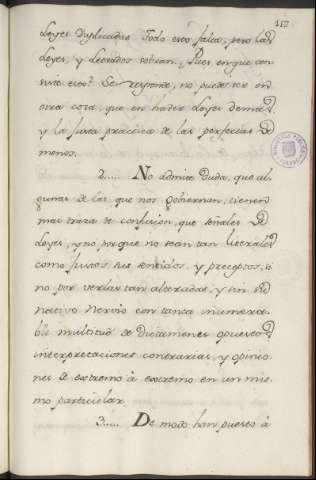 117
Leyes duplicadas. Todo esto falta, pero las
Leyes, y Letrados sobran. Pues en que con
siste esto? Se responde, no puede ser en
otra cosa, que en haber Leyes demas,
y la justa práctica de las perfectas de
menos.
2.... No admite Duda, que al
gunas de las que nos gobiernan, tienen
mas traza de confusion, que señales de
Leyes, y no porque no sean tan literales
como justos sus sentidos, y preceptos, si
no por verlas tan alteradas, y sin su
nativo Nervio con tanta innumera
ble multitud de Dictamenes opuestos,
interpretaciones contrarias, y opinio
nes de extremo à extremo en un mis
mo particular.
3.... De modo han puesto à